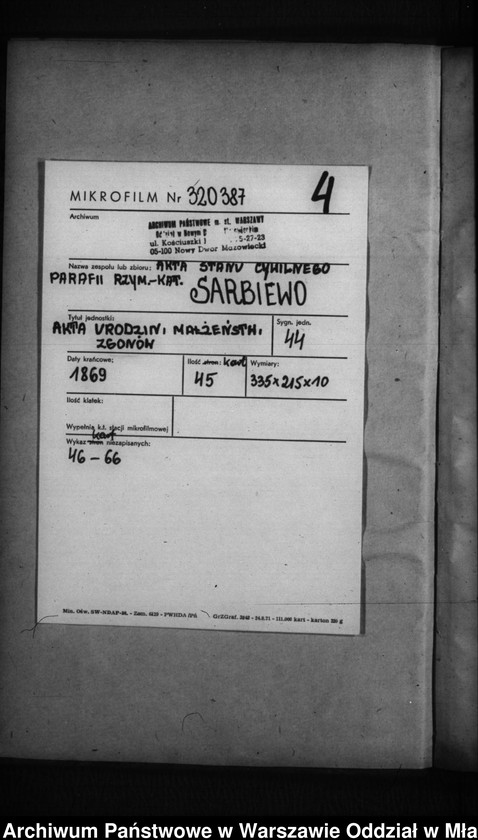 4
MIKROFILM Nr 320387
Archiwum
ARCHIWUM PAŃSTWOWE m. st. WARSZAWY
w Nowym
ul. Kościuszki 5-27-23
05-100 Nowy Dwór Mazowiecki
Nazwa zespołu lub zbioru: AKTA STANU CYWILNEGO
PARAFII RZYM.-KAT. SARBIEWO
Tytuł jednostki:
AKTA URODZIN, MAŁŻEŃSTW,
ZGONÓW
Sygn. jedn.
44
Daty krańcowe:
1869
Ilość stron: kart
45
Wymiary:
335x215x10
Ilość klatek:
Wypełnia k.t. stacji mikrofilmowej
kart
Wykaz stron niezapisanych:
46 - 66
Min. Ośw. SW-NDAP-86. - Zam.
GrZGraf. - 111.000 kart - karton g
Archiwum Państwowe w Warszawie Oddział w Mła